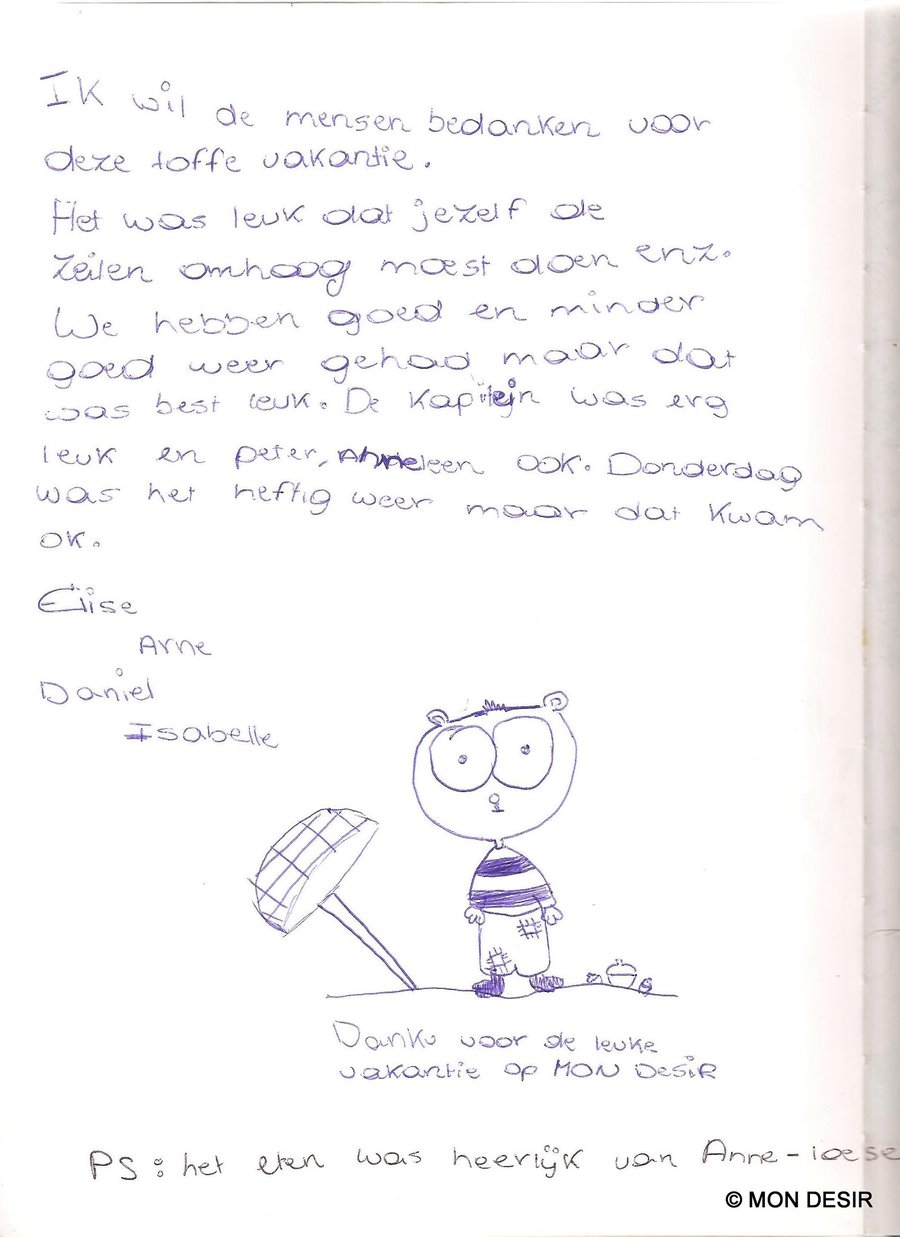 IK wil de mensen bedanken voor
deze toffe vakantie.
Het was leuk dat jezelf de
zeilen omhoog moest doen enz.
We hebben goed en minder
goed weer gehad maar dat
was best leuk. De Kapitejn was erg
leuk en peter, Anneleen ook. Donderdag
was het heftig weer maar dat kwam
ok.
Elise
Arne
Daniel
Isabelle
Danku voor de leuke
vakantie op MON DesiR
PS: het eten was heerlijk van Anne-loese
© MON DESIR